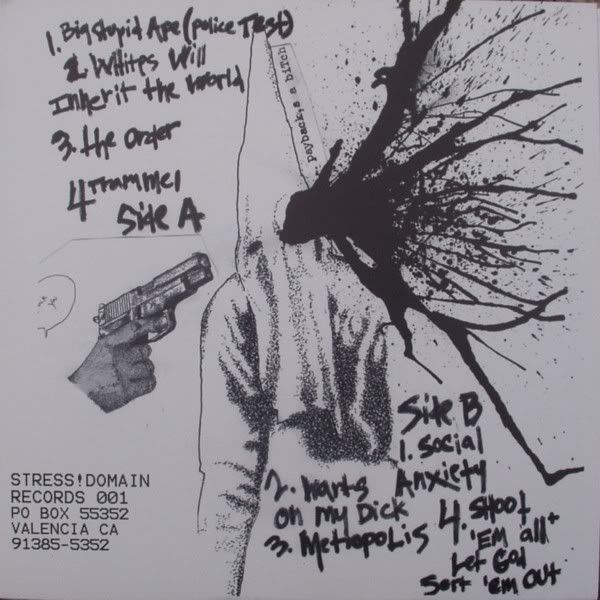 1. Big Stupid Ape (police Test)
2. Whites Will
Inherit the World
3. the order
4 Trammel
Side A
payback,s a bitch
Side B
1. Social
Anxiety
2. Warts
on my Dick
3. Metropolis
4. Shoot
'Em all +
Let God
Sort 'em Out
STRESS!DOMAIN
RECORDS 001
PO BOX 55352
VALENCIA CA
91385-5352